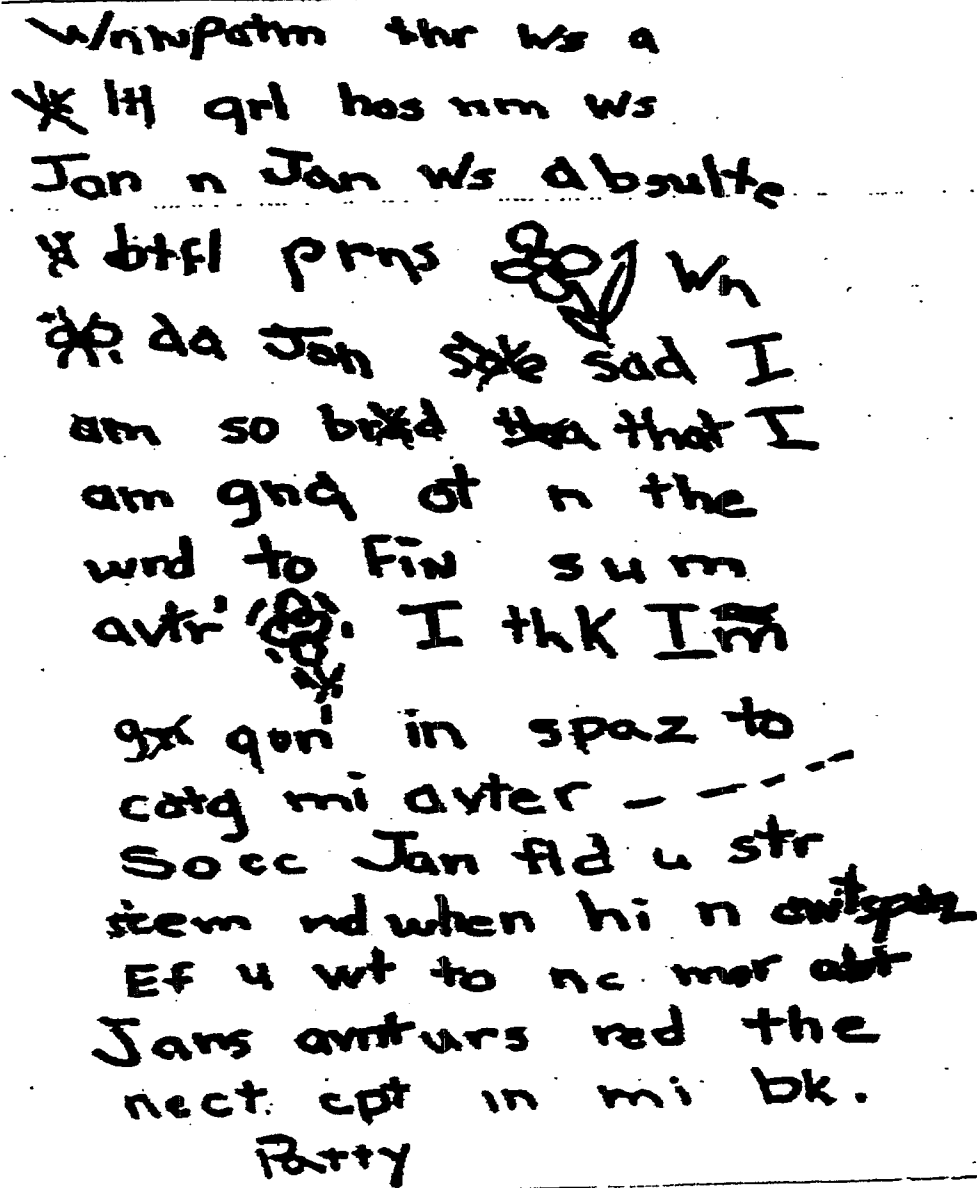 thr ws a
ltl grl hos nm ws
Jan n Jan ws absulte
btfl prns Wn
da Jan sad I
am so brd that I
am gnq ot n the
wrd to Fin sum
avtr I thk Im
gon in spaz to
catg mi avter ----
Socc Jan fld u str
steem nd when hi n owtspaz
Ef u wt to nc mor abt
Jans avnturs red the
nect cpt in mi bk.
Patty